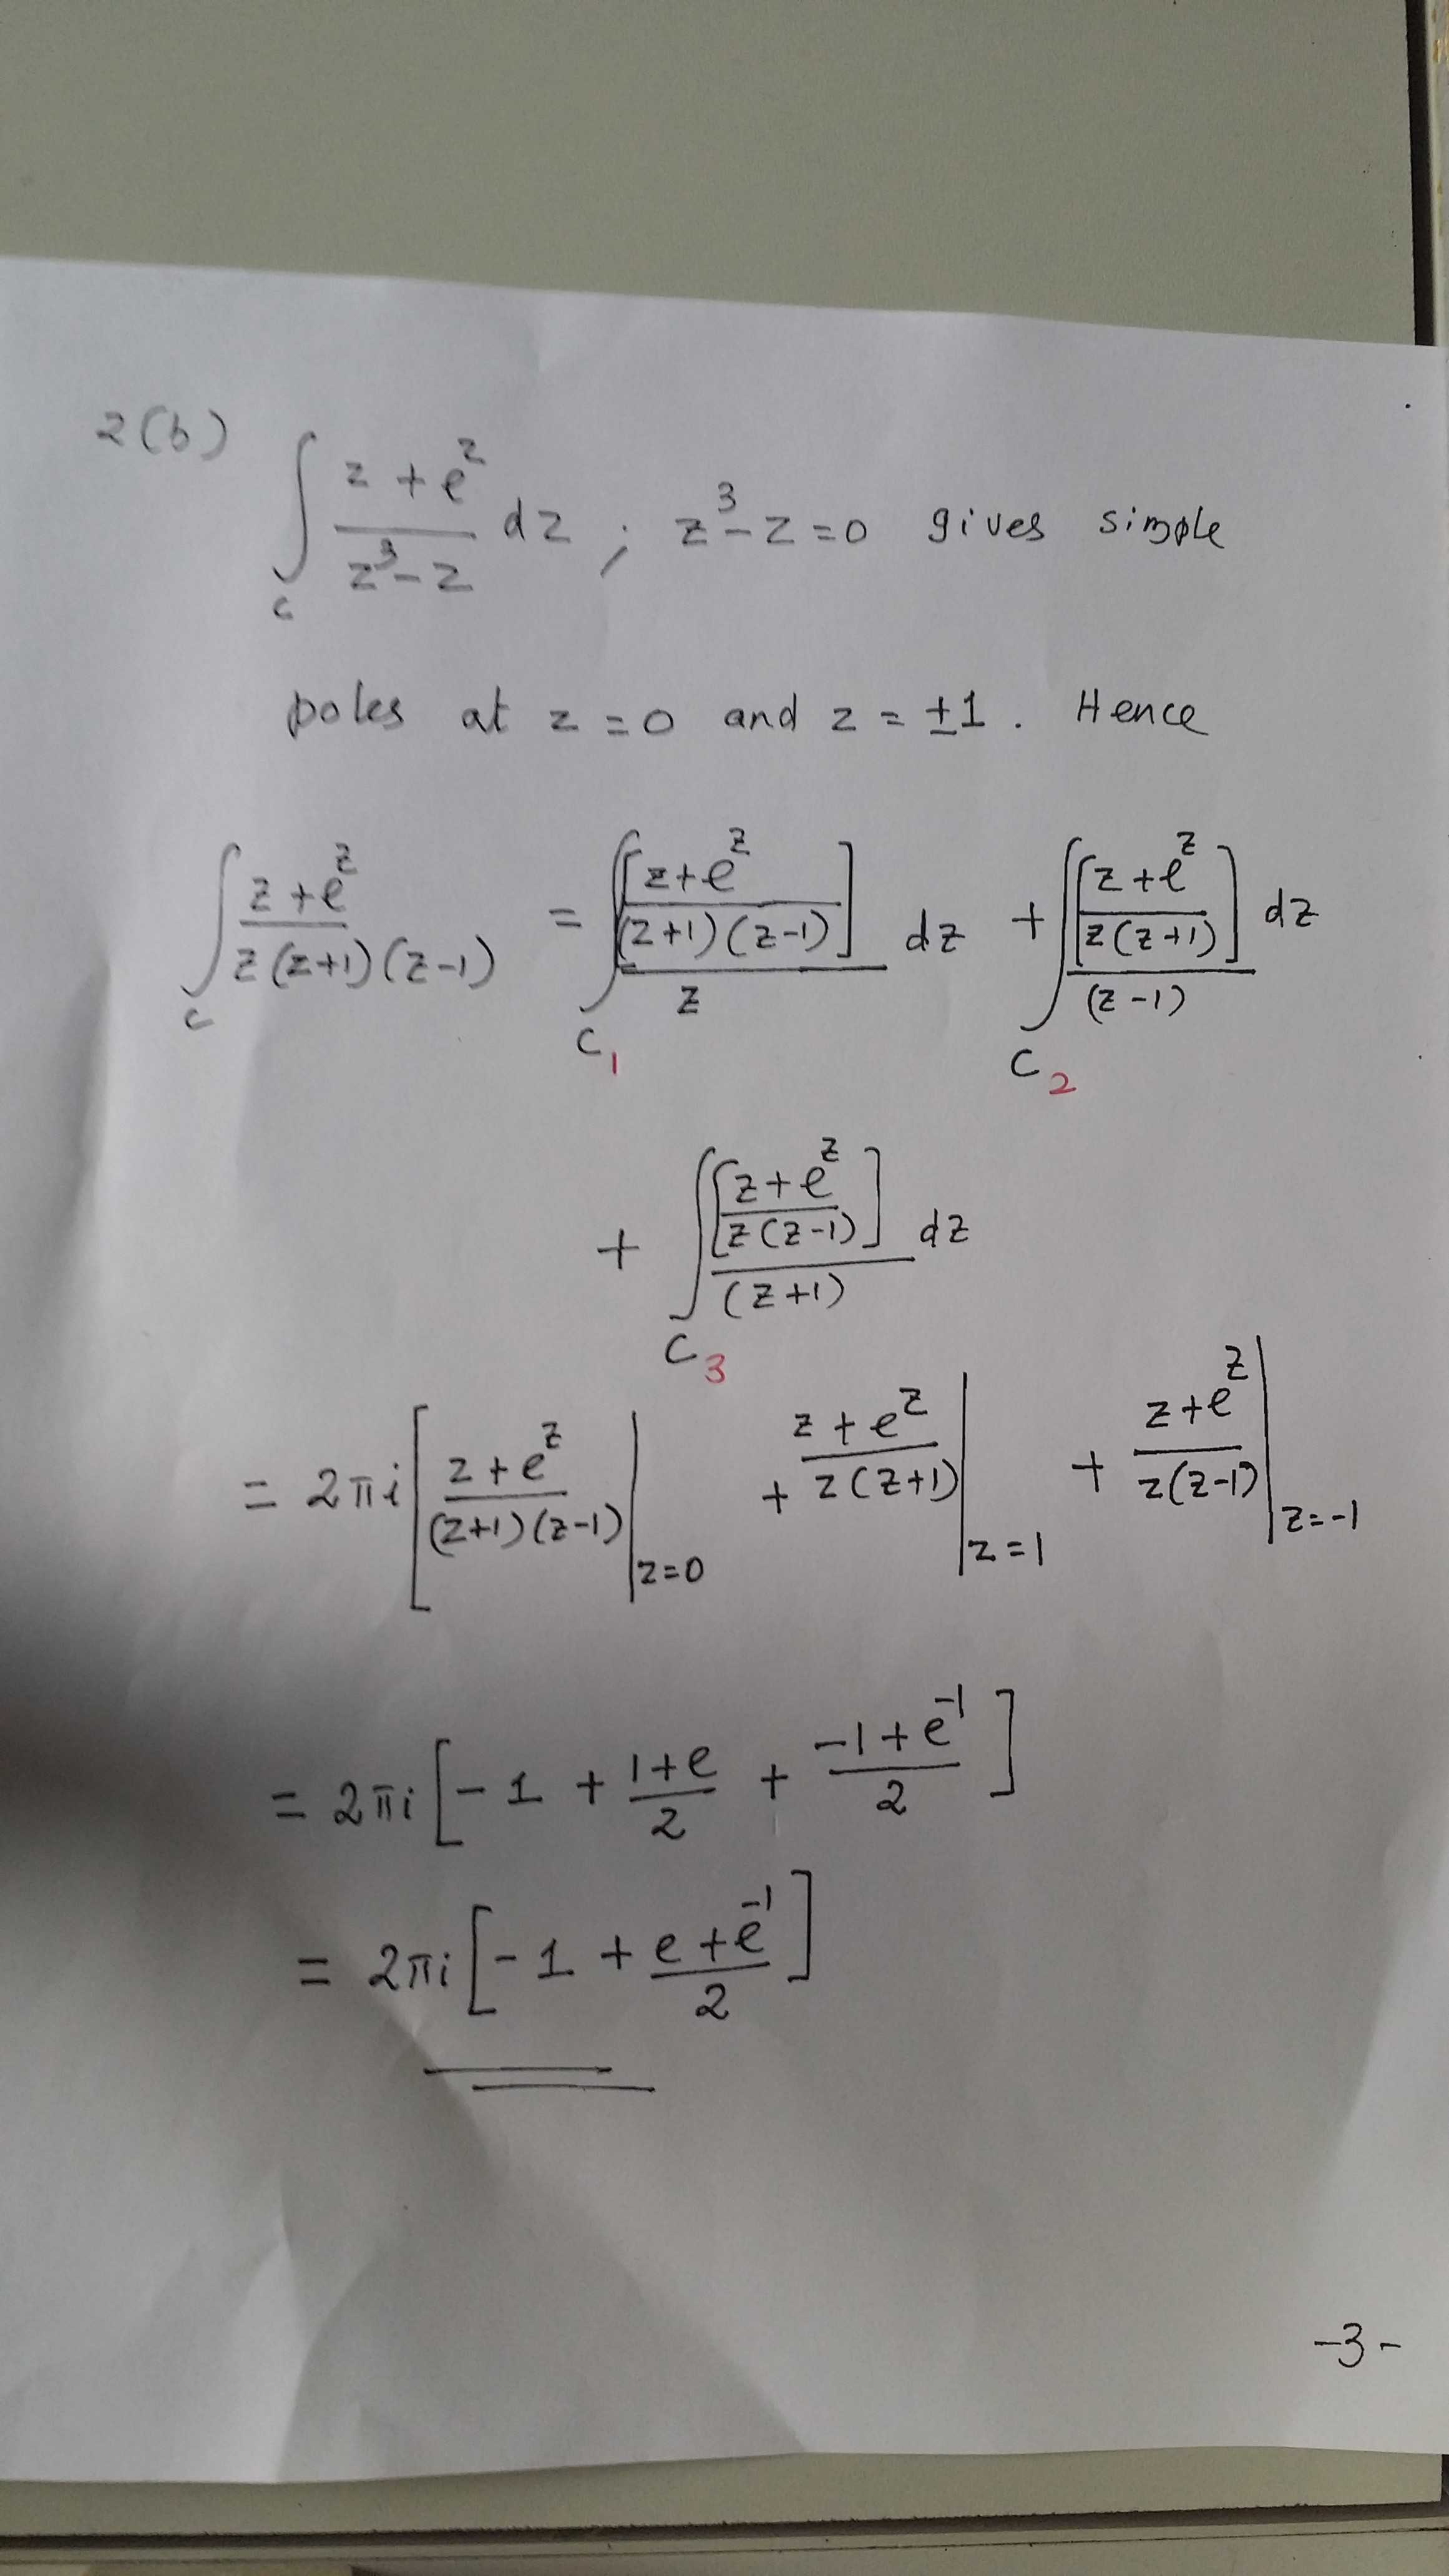 2(b) ∫_C (z + e^z)/(z^3 - z) dz ; z^3 - z = 0 gives simple
poles at z = 0 and z = ±1. Hence
∫_C (z + e^z)/(z(z+1)(z-1)) = ∫_{C_1} [(z+e^z)/((z+1)(z-1))]/z dz + ∫_{C_2} [(z+e^z)/(z(z+1))]/(z-1) dz
+ ∫_{C_3} [(z+e^z)/(z(z-1))]/(z+1) dz
= 2πi [ (z+e^z)/((z+1)(z-1)) |_{z=0} + (z+e^z)/(z(z+1)) |_{z=1} + (z+e^z)/(z(z-1)) |_{z=-1}
= 2πi [ -1 + (1+e)/2 + (-1+e^{-1})/2 ]
= 2πi [ -1 + (e+e^{-1})/2 ]
-3-